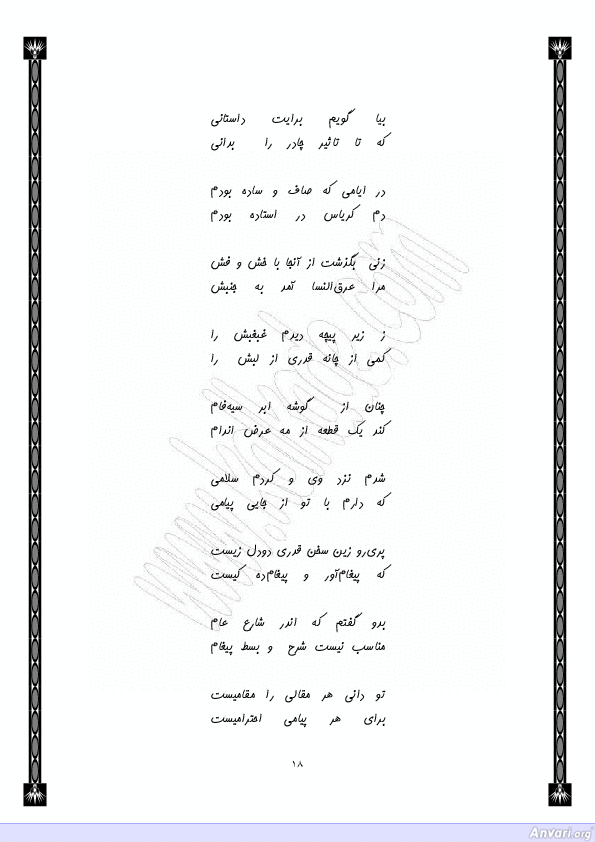 بیا گویم برایت داستانی
که تا تاثیر چادر را برانی
در ایامی که صاف و ساده بودم
دم کریاس در استاده بودم
زنی بگذشت از آنجا با خش و فش
مرا عرق‌النسا آمد به جنبش
ز زیر پیچه دیدم غبغبش را
کمی از چانه قدری از لبش را
چنان از گوشه ابر سیه‌فام
کند یک قطعه از مه عرض اندام
شدم نزد وی و کردم سلامی
که دارم با تو از جایی پیامی
پری‌رو زین سخن قدری دودل زیست
که پیغام‌آور و پیغام‌ده کیست
بدو گفتم که اندر شارع عام
مناسب نیست شرح و بسط پیغام
تو دانی هر مقالی را مقامیست
برای هر پیامی احترامیست
۱۸
Anvari.org